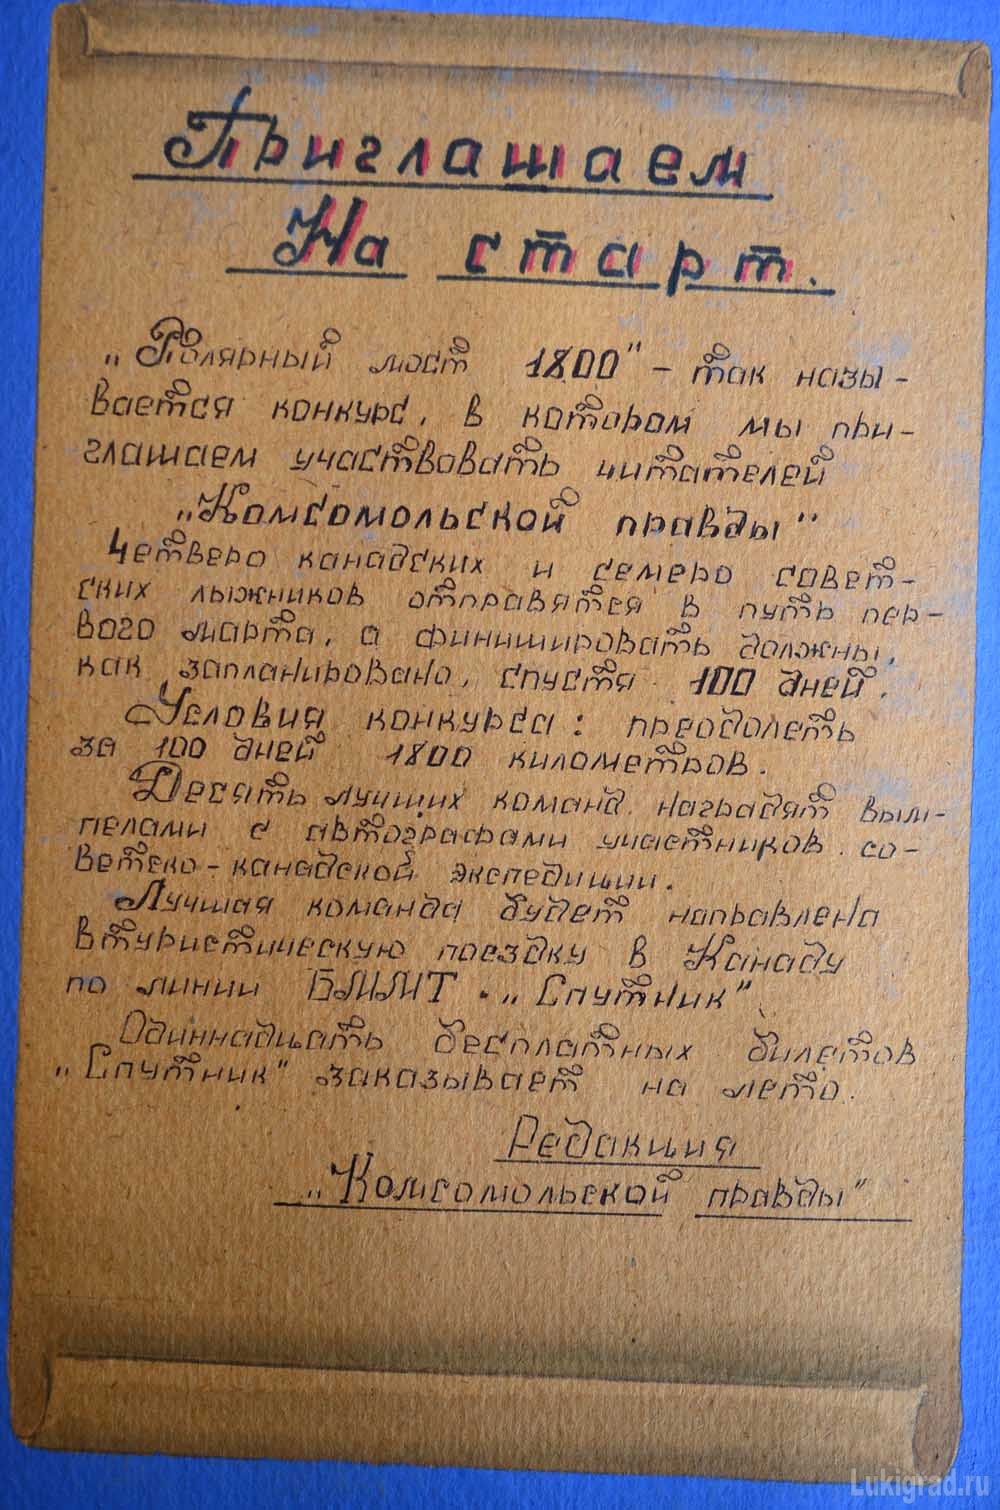 Приглашаем
На старт.
„Полярный мост 1800" - так назы-
вается конкурс, в котором мы при-
глашаем участвовать читателей
„Комсомольской правды"
Четверо канадских и семеро совет-
ских лыжников отправятся в путь пер-
вого марта, а финишировать должны,
как запланировано, спустя 100 дней.
Условия конкурса: преодолеть
за 100 дней 1800 километров.
Десять лучших команд наградят вым-
пелами с автографами участников со-
ветско-канадской экспедиции.
Лучшая команда будет направлена
в туристическую поездку в Канаду
по линии БММТ „Спутник"
Одиннадцать бесплатных билетов
„Спутник" заказывает на лето.
Редакция
„Комсомольской правды"
Lukigrad.ru